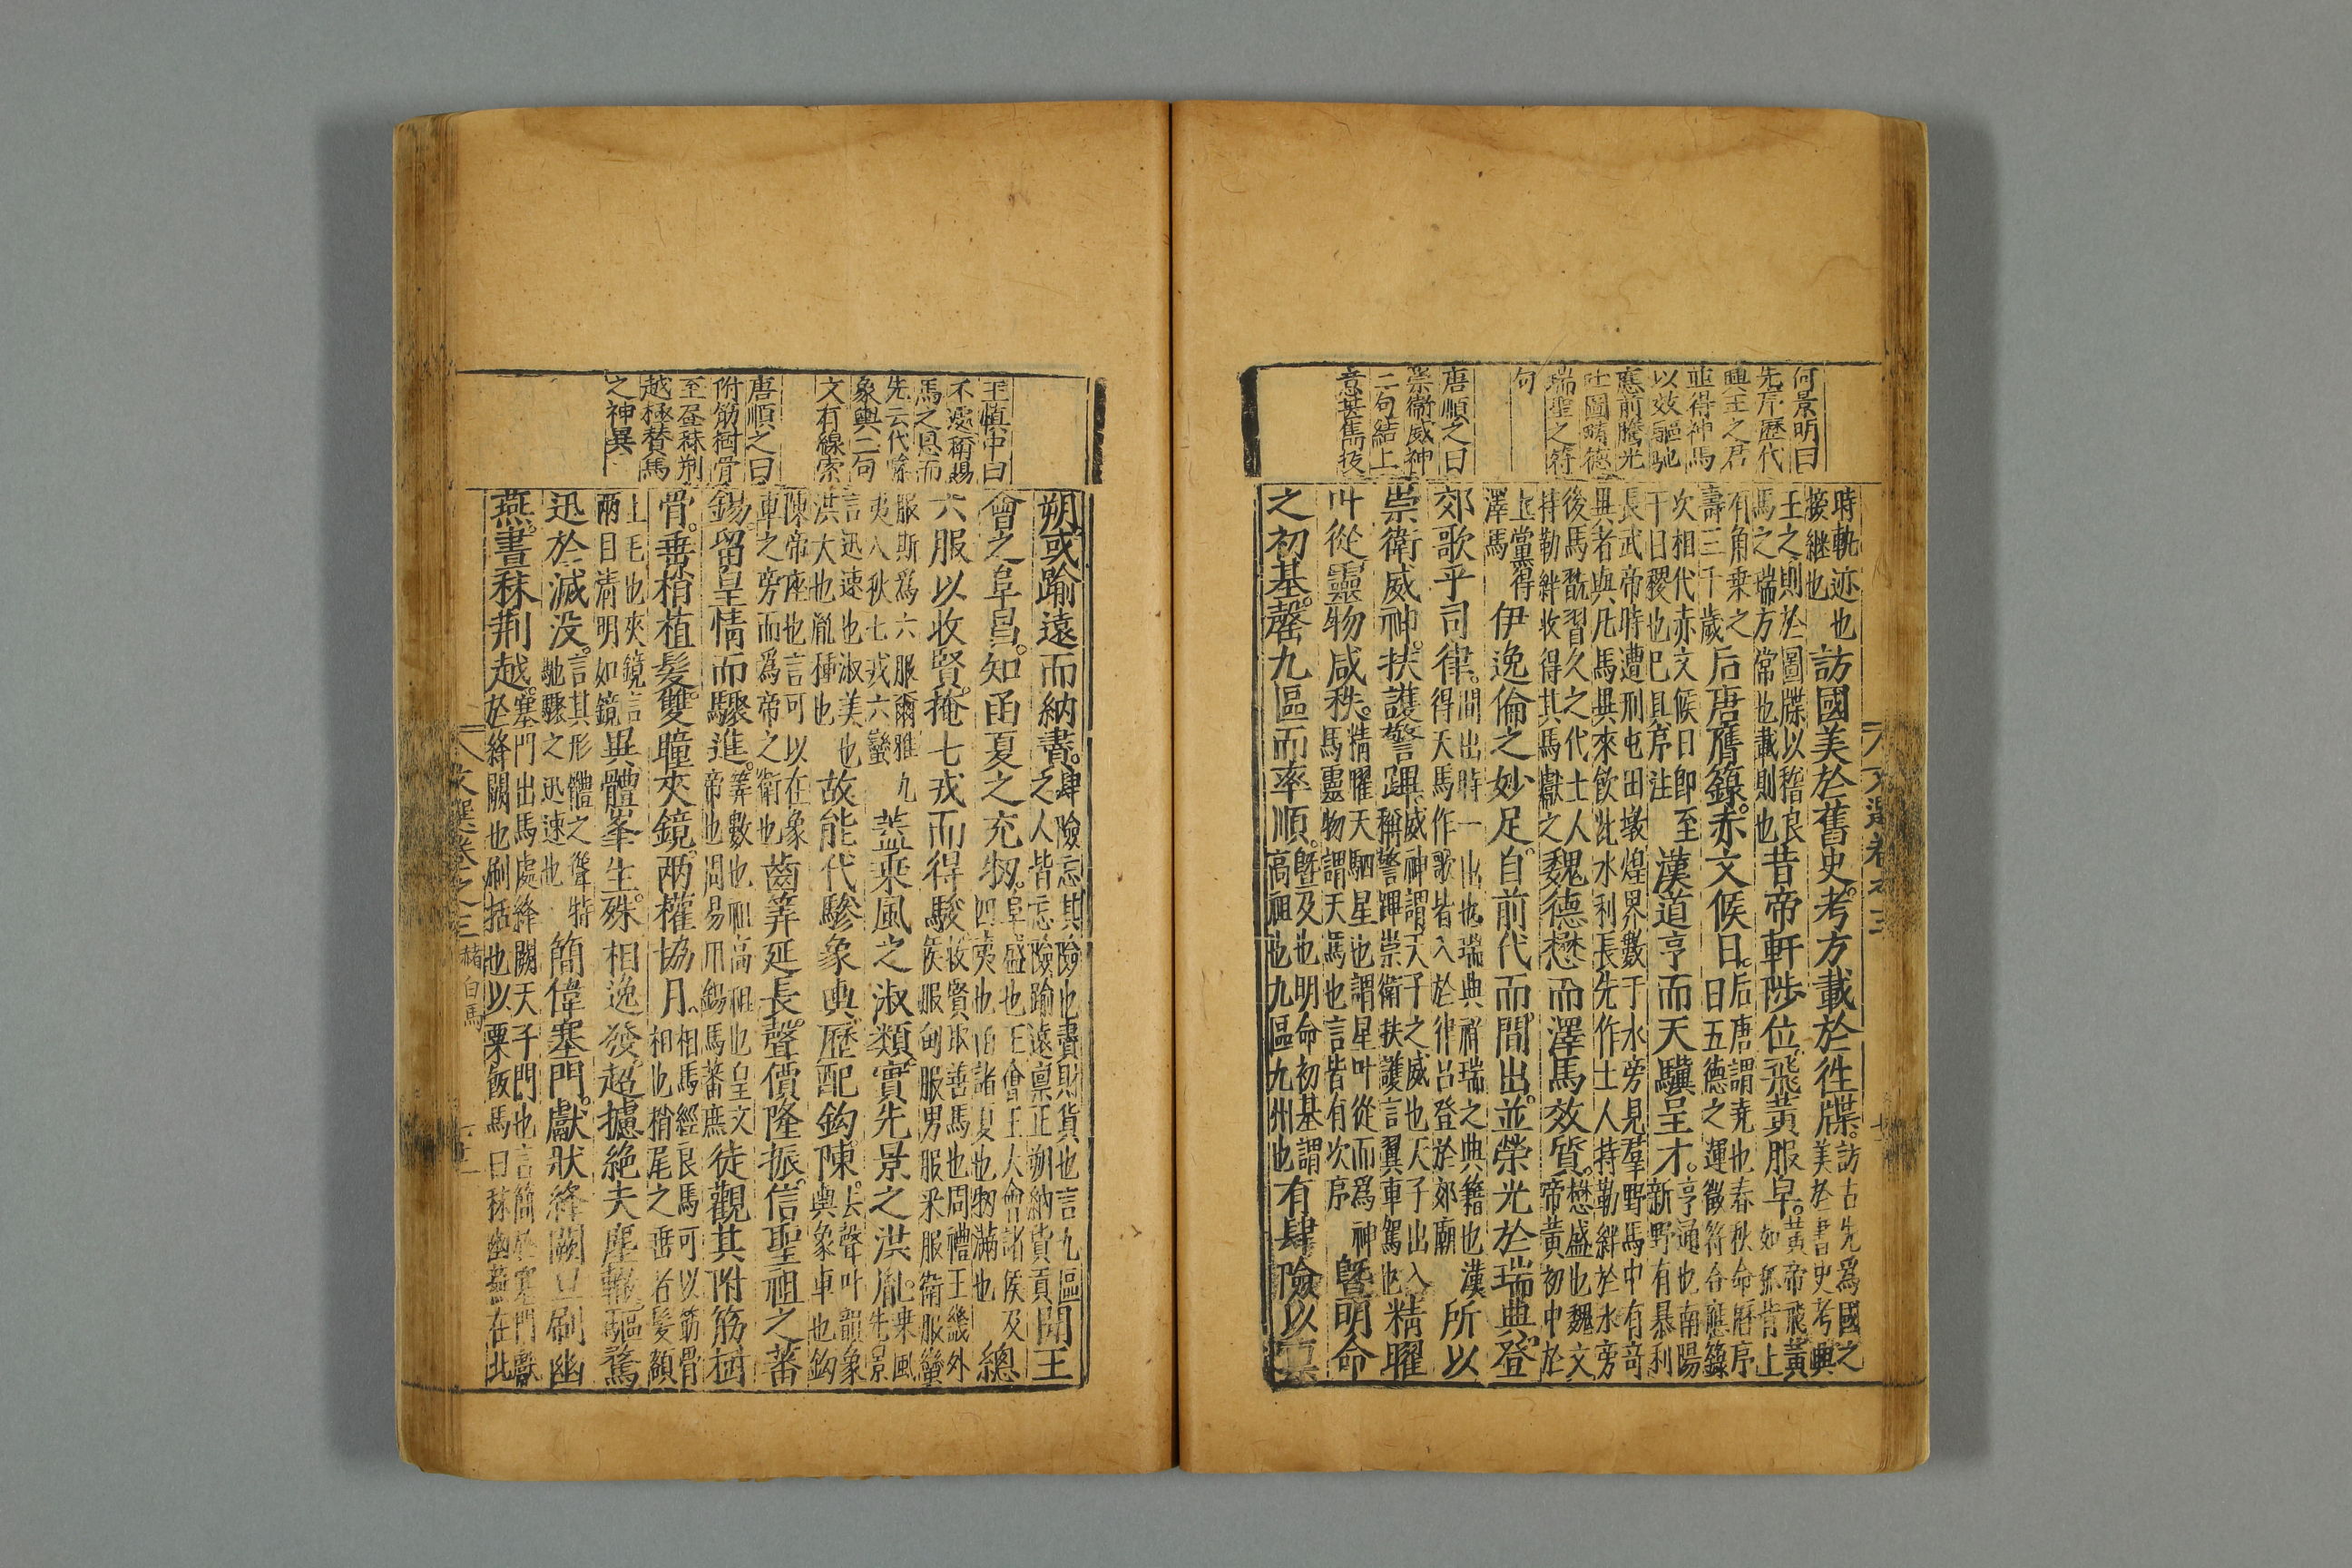 何景明曰
先序歷代
興王之君
並得神馬
以效驅馳
應前騰光
吐圖疇德
瑞聖之符
句
唐順之曰
崇衛威神
二句結上
意甚雋拔
時軌迹也接繼也訪國美於舊史。考方載於往牒。訪古先爲國之美於書史考典
王之則於圖牒以稽良馬之瑞方常也載則也昔帝軒陟位飛黃服皁。黃帝飛黃如狐背上
有角乘之壽三千歲后唐膺籙。赤文候日。后唐謂堯也春秋命曆序曰五德之運徵符合應籙
次相代赤文候日卽至干日稷也已具序注漢道亨而天驥呈才。亨通也南陽新野有暴利
長武帝時遭刑屯田墩煌界數于水旁見羣野馬中有奇異者與凡馬異來飮此水利長先作土人持勒絆於水旁
後馬翫習久之代土人持勒絆收得其馬獻之魏德懋而澤馬效質。懋盛也魏文帝黃初中於
上黨得澤馬伊逸倫之妙足。自前代而間出。並榮光於瑞典。登
郊歌乎司律。間出時一出也瑞典祥瑞之典籍也漢得天馬作歌皆入於律呂登於郊廟所以
崇衛威神。扶護警蹕。威神謂天子之威也天子出入稱警蹕崇衛扶護言翼車駕也精曜
叶從靈物咸秩。精曜天駟星也謂星叶從而爲神馬靈物謂天馬也言皆有次序曁明命
之初基。罄九區而率順。曁及也明命初基謂高祖也九區九州也有肆險以稟
王愼中曰
不遽稱賜
馬之恩而
先云代驂
象輿二句
文有線索
唐順之曰
附筋樹骨
至晝秣荆
越極贊馬
之神異
朔或踰遠而納賮。肆險忘其險也賮財貨也言九區之人皆忘險踰遠稟正朔納貨貢聞王
會之阜昌。知函夏之充牣。阜盛也王會王人會諸侯及四夷也怕諸夏也牣滿也總
六服以收賢。掩七戎而得駿收賢取善馬也周禮王畿外侯服甸服男服采服衛服蠻
服斯爲六服爾雅九夷八狄七戎六蠻蓋乘風之淑類。實先景之洪胤。乘風先景
言迅速也淑美也洪大也胤種也故能代驂象輿。歷配鈎陳。去聲叶韻象輿象車也鈎
陳帝座也言可以在象車之旁而爲帝之衛也齒筭延長。聲價隆振。信聖祖之蕃
錫。留皇情而驟進。筭數也祖高祖也皇文帝也周易用錫馬蕃庶徒觀其附筋樹
骨。垂梢植髮。雙瞳夾鏡。兩權協月。相馬經良馬可以筋骨相也梢尾之垂者髮額
上毛也夾鏡言兩目淸明如鏡異體峯生。殊相逸發。超攄絕夫塵轍驅騖
迅於滅沒。言其形體之聳特馳驟之迅速也簡偉塞門。獻狀絳闕旦刷幽
燕。晝秣荆越。塞門出馬處絳闕天子門也言簡於塞門獻於絳闕也刷括也以粟飯馬曰秣幽燕在北
文選卷之三 赭白馬